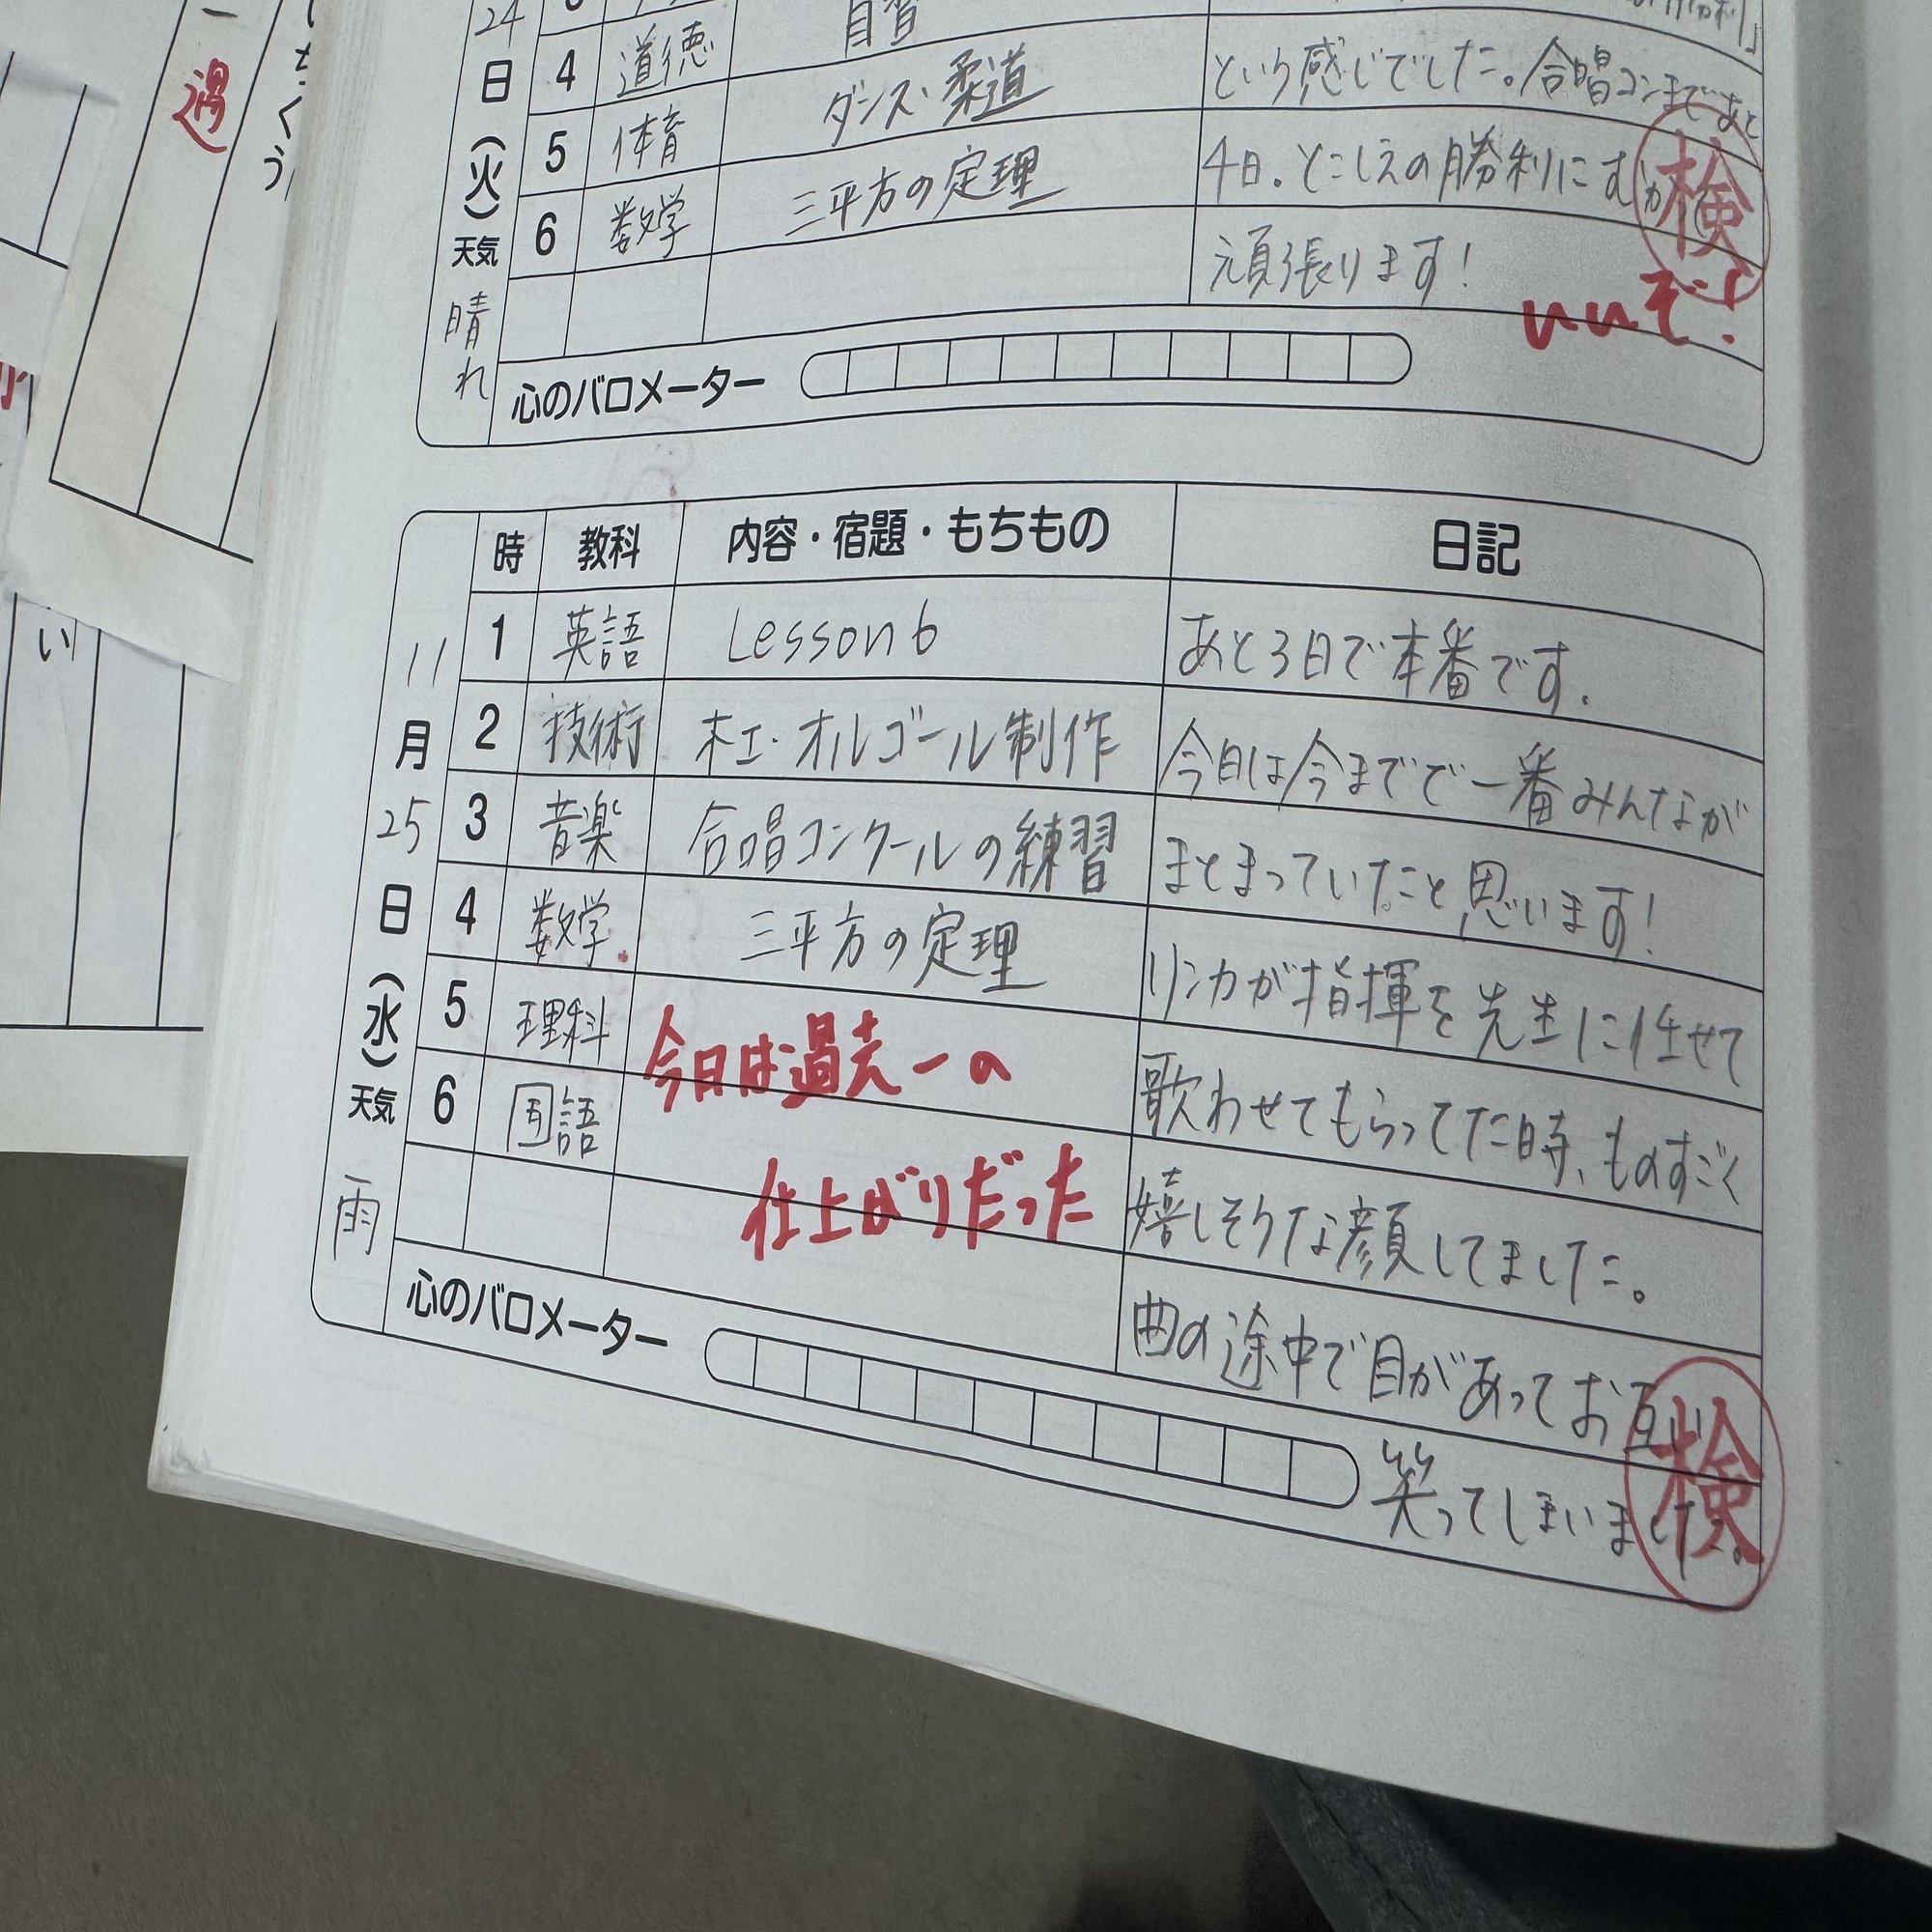 24
日
(火)
天気
晴れ
自習
4 道徳
5 体育 ダンス・柔道
6 数学 三平方の定理
という感じでした。合唱コンまであと
4日。とこしえの勝利にむか
頑張ります!
検
いいぞ!
心のバロメーター
時 教科 内容・宿題・もちもの 日記
11
月
25
日
(水)
天気
雨
1 英語 Lesson6
2 技術 木工・オルゴール制作
3 音楽 合唱コンクールの練習
4 数学 三平方の定理
5 理科
6 国語
今日は過去一の
仕上がりだった
あと3日で本番です.
今日は今までで一番みんなが
まとまっていたこと思います!
リンカが指揮を先生に任せて
歌わせてもらってた時、ものすごく
嬉しそうな顔してました。
曲の途中で目があってお互い
笑ってしまいました。
検
心のバロメーター
過
い